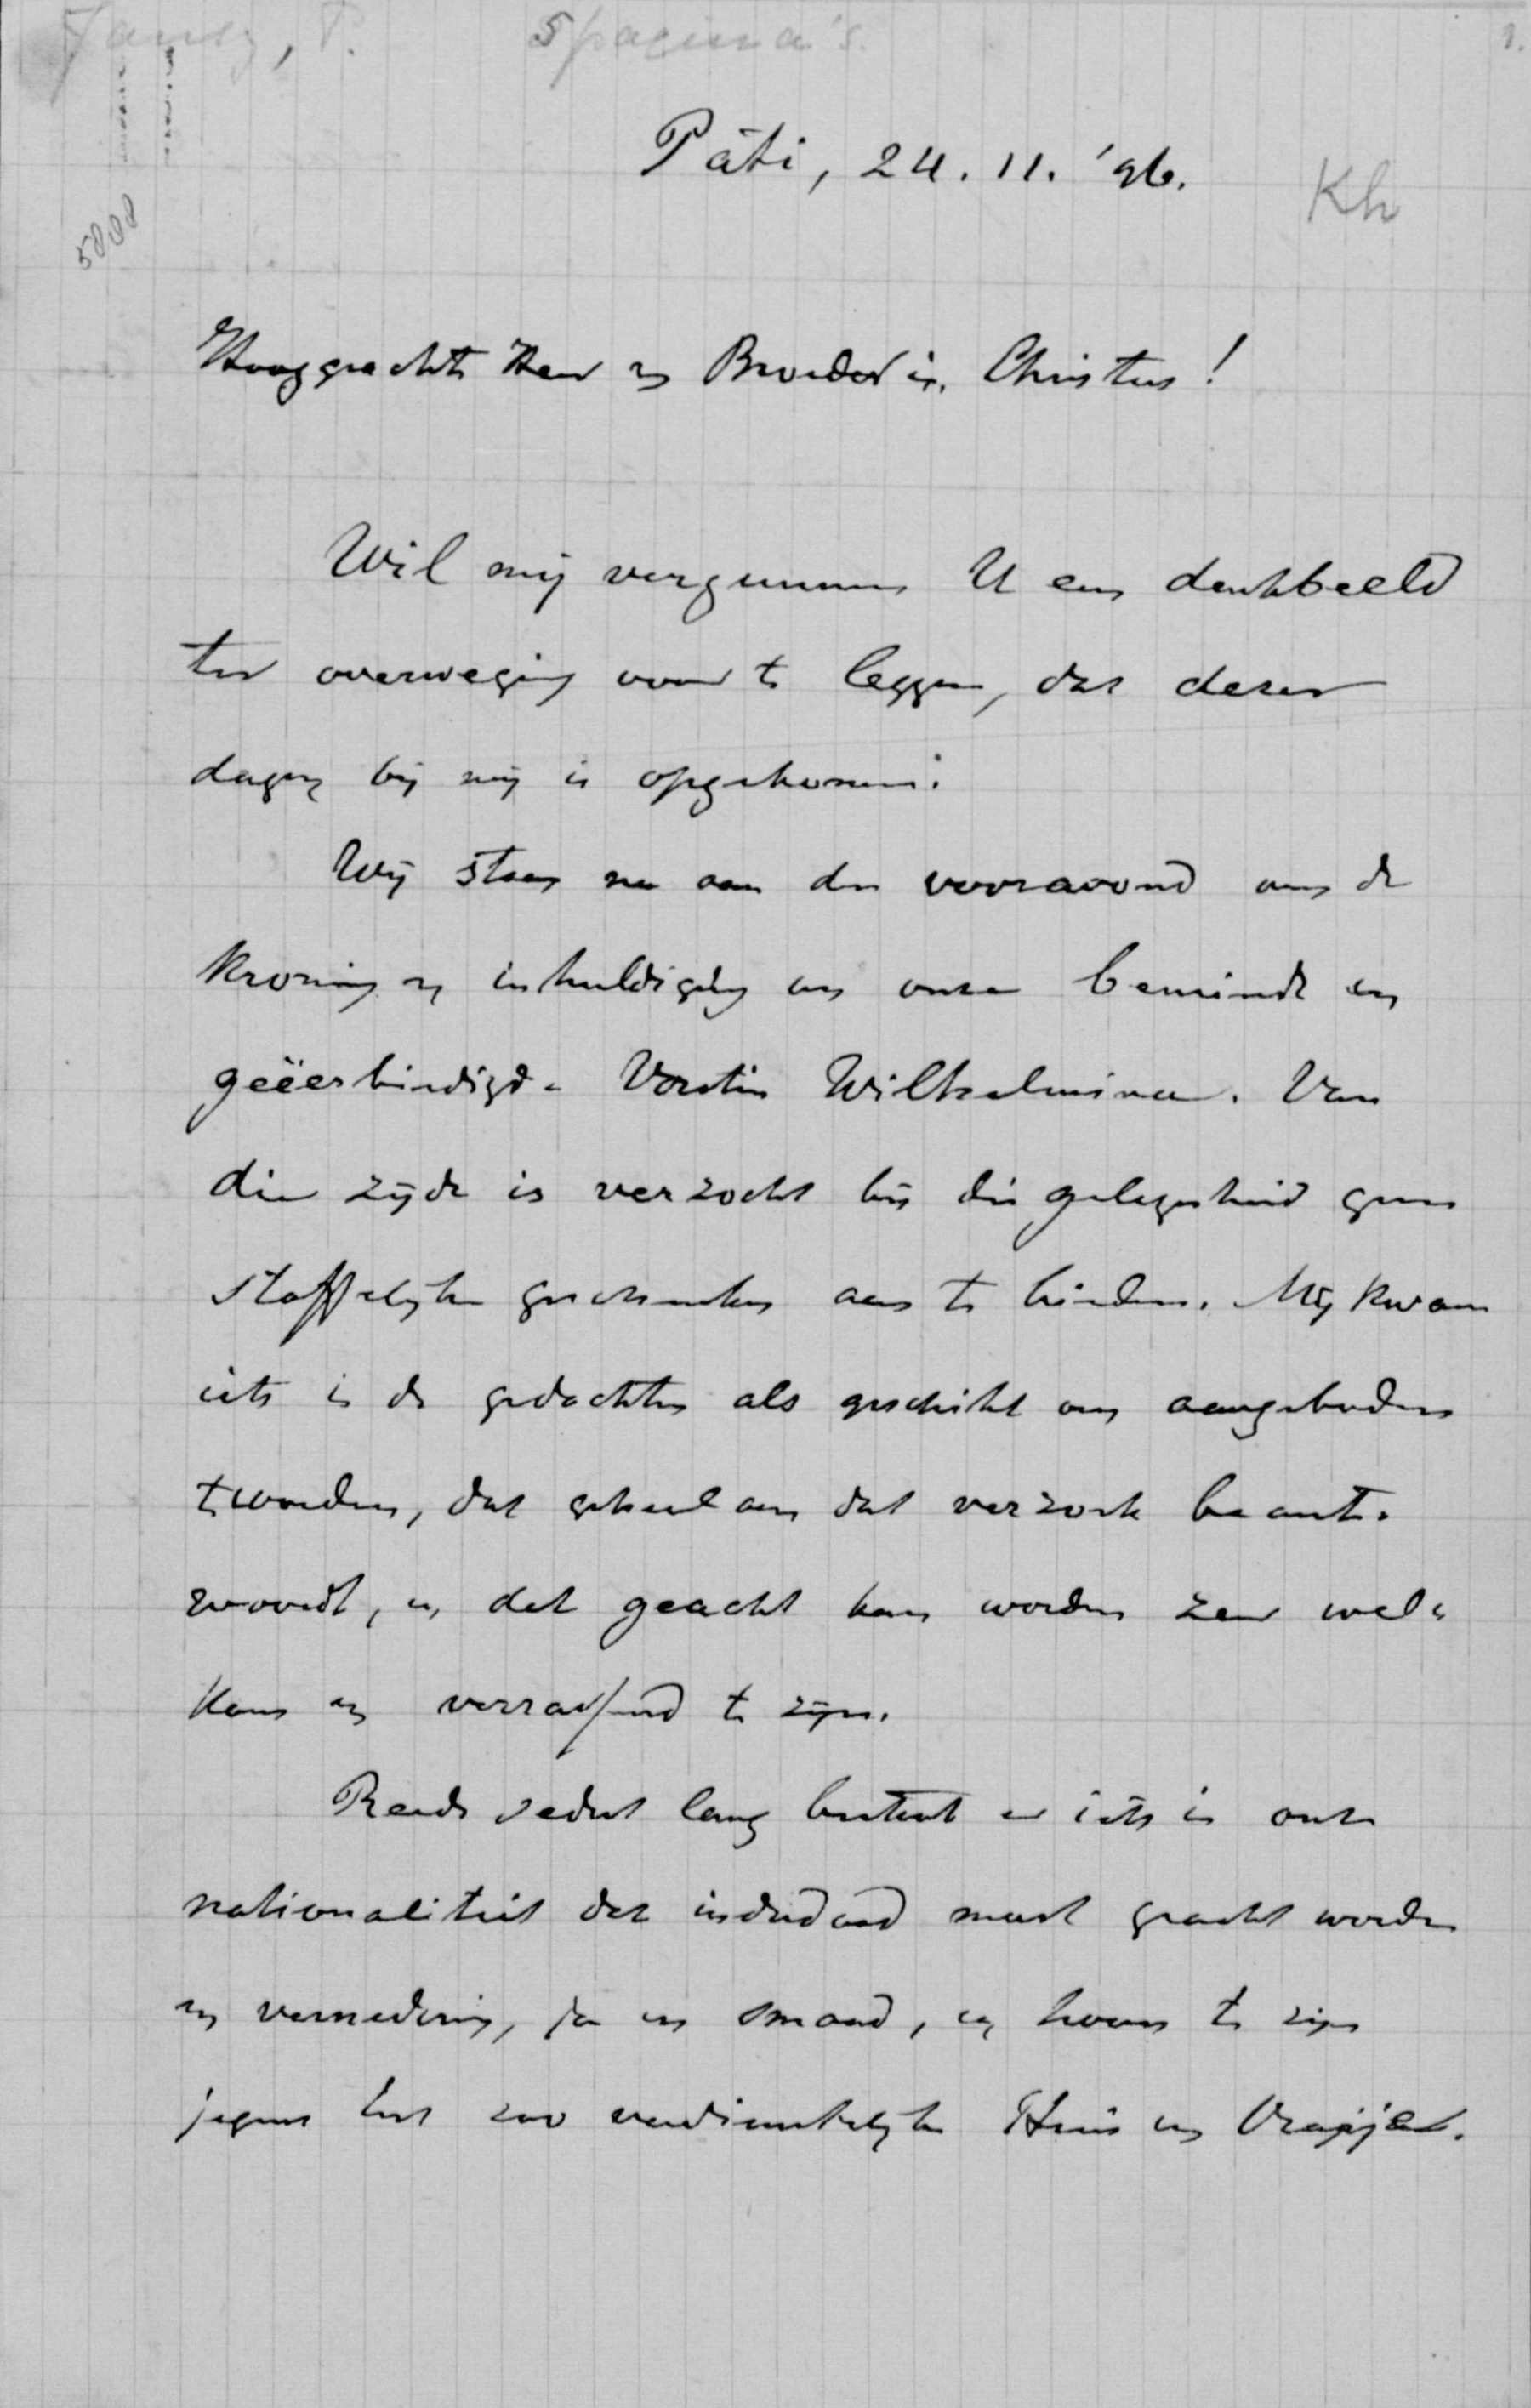 Jansz, P. 5 pagina's. 1.
Pati, 24. 11. '96.
Kh
5008
Hooggeachte Heer en Broeder in Christus!
Wil mij vergunnen U een denkbeeld
ter overweging voor te leggen, dat dezer
dagen bij mij is opgekomen:
Wij staan nu aan den vooravond van de
kroning en inhuldiging van onze beminde en
geëerbiedigde Vorstin Wilhelmina. Van
die zijde is verzocht bij die gelegenheid geen
stoffelijke geschenken aan te bieden. Mij kwam
iets in de gedachten als geschikt om aangeboden
te worden, dat geheel aan dat verzoek beant-
woordt, en dat geacht kan worden zeer wel-
kom en verrassend te zijn.
Reeds sedert lang bestaat er iets in onze
nationaliteit dat inderdaad moet geacht worden
een vernedering, ja een smaad, een hoon te zijn
jegens het zoo verdienstelijke Huis van Oranje.